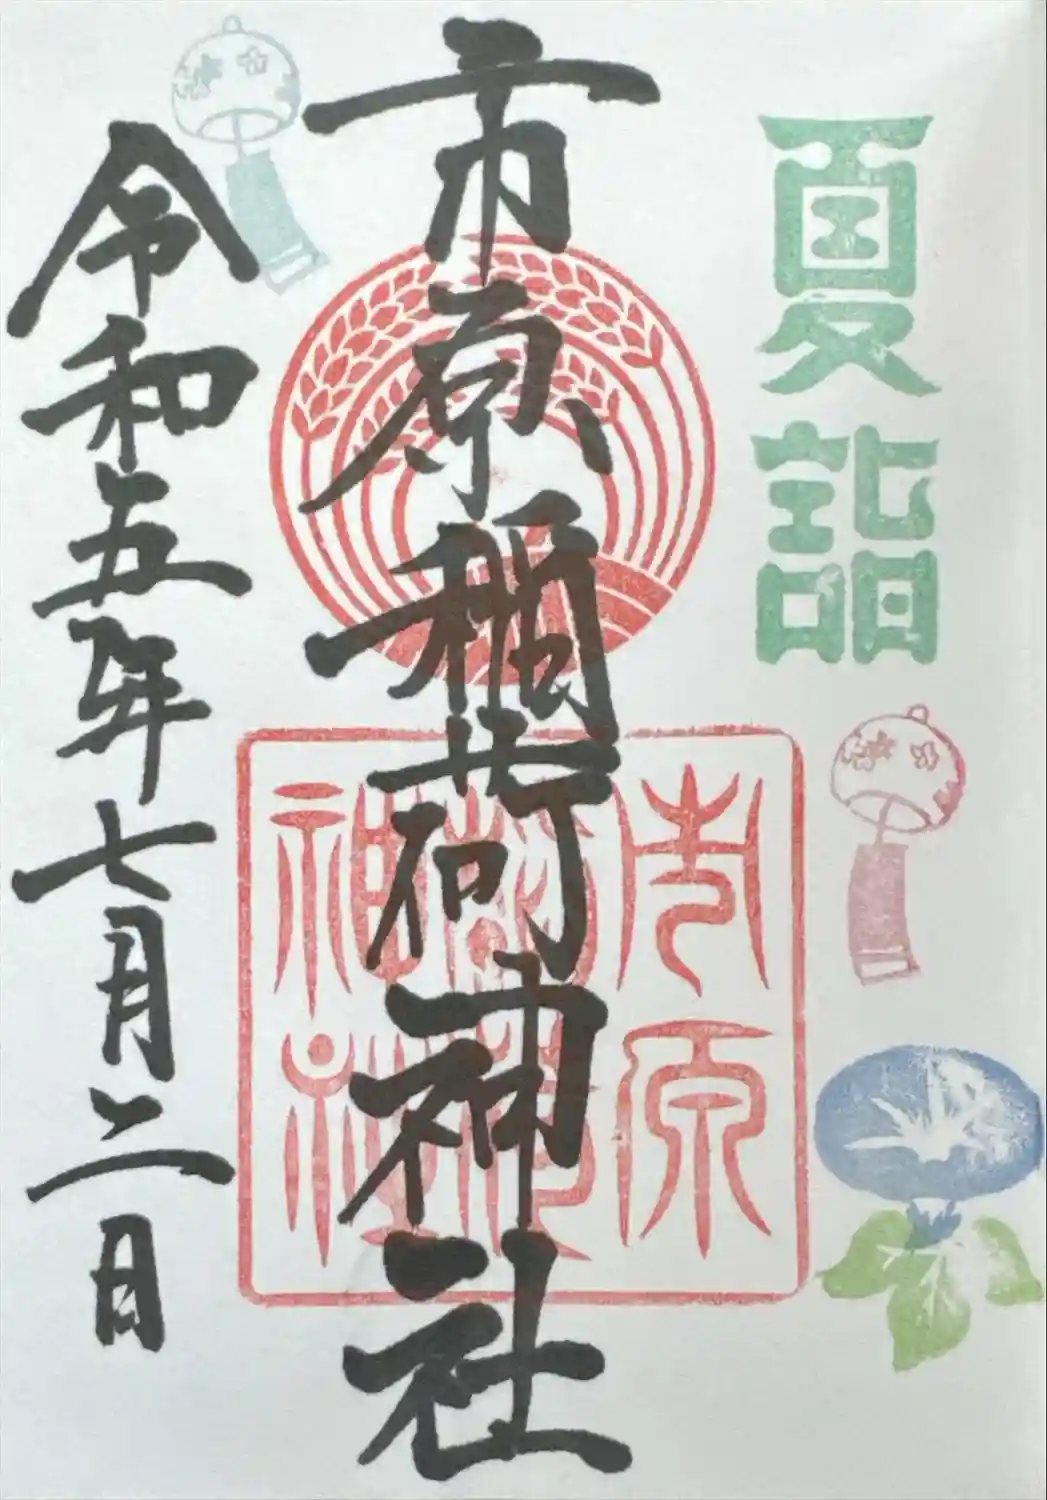 夏詣
市原稲荷神社
市原
稲荷
神社
令和五年七月二日